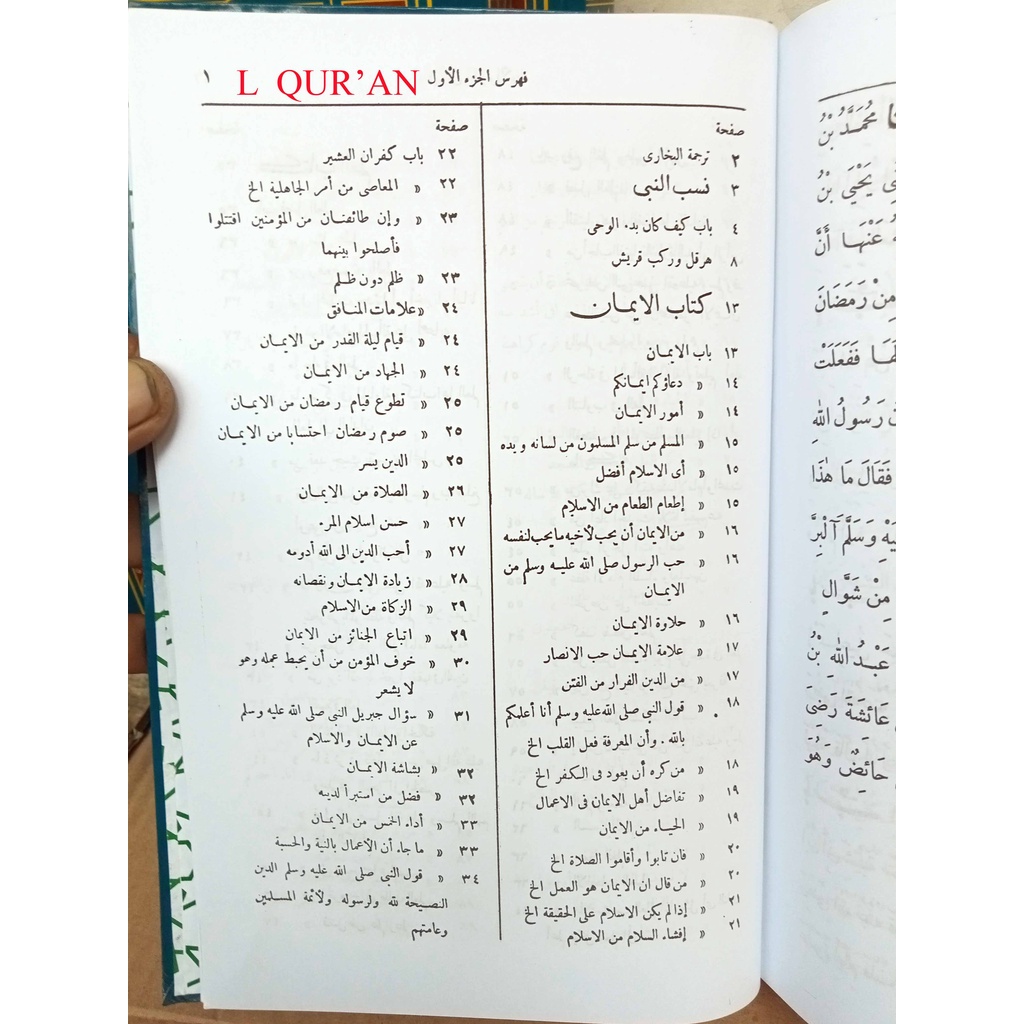 فهرس الجزء الأول
L QUR'AN
١
صفحة
٢ ترجمة البخارى
٣ نسب النبى
٤ باب كيف كان بدء الوحى
٨ هرقل وركب قريش
١٣ كتاب الايمان
١٣ باب الايمان
١٤ « دعاؤكم ايمانكم
١٤ « أمور الايمان
١٥ « المسلم من سلم المسلمون من لسانه ويده
١٥ « أى الاسلام أفضل
١٥ « إطعام الطعام من الاسلام
١٦ « من الايمان أن يحب لأخيه مايحب لنفسه
١٦ « حب الرسول صلى الله عليه وسلم من
الايمان
١٦ « حلاوة الايمان
١٧ « علامة الايمان حب الانصار
١٧ « من الدين الفرار من الفتن
١٨ « قول النبى صلى الله عليه وسلم أنا أعلمكم
بالله . وأن المعرفة فعل القلب الخ
١٨ « من كره أن يعود فى الكفر الخ
١٩ « تفاضل أهل الايمان فى الاعمال
١٩ « الحياء من الايمان
٢٠ « فان تابوا وأقاموا الصلاة الخ
٢٠ « من قال ان الايمان هو العمل الخ
٢١ « إذا لم يكن الاسلام على الحقيقة الخ
٢١ « إفشاء السلام من الاسلام
صفحة
٢٢ باب كفران العشير
٢٢ « المعاصى من أمر الجاهلية الخ
٢٣ « وإن طائفتان من المؤمنين اقتتلوا
فأصلحوا بينهما
٢٣ « ظلم دون ظلم
٢٤ « علامات المنافق
٢٤ « قيام ليلة القدر من الايمان
٢٤ « الجهاد من الايمان
٢٥ « تطوع قيام رمضان من الايمان
٢٥ « صوم رمضان احتسابا من الايمان
٢٥ « الدين يسر
٢٦ « الصلاة من الايمان
٢٧ « حسن اسلام المرء
٢٧ « أحب الدين الى الله أدومه
٢٨ « زيادة الايمان ونقصانه
٢٩ « الزكاة من الاسلام
٢٩ « اتباع الجنائز من الايمان
٣٠ « خوف المؤمن من أن يحبط عمله وهو
لا يشعر
٣١ « سؤال جبريل النبى صلى الله عليه وسلم
عن الايمان والاسلام
٣٢ « بشاشة الايمان
٣٢ « فضل من استبرأ لدينه
٣٣ « أداء الخمس من الايمان
٣٣ « ما جاء أن الأعمال بالنية والحسبة
٣٤ « قول النبى صلى الله عليه وسلم الدين
النصيحة لله ولرسوله ولأئمة المسلمين
وعامتهم
مُحَمَّدُ بْنُ
يَحْيَى بْنُ
عَنْهَا أَنَّ
مِنْ رَمَضَانَ
فَفَعَلَتْ
رَسُولُ اللهِ
فَقَالَ مَا هٰذَا
وَسَلَّمَ آلْبِرَّ
مِنْ شَوَّالٍ
عَبْدُ اللهِ بْنُ
عَائِشَةَ رَضِىَ
حَائِضٌ وَهُوَ